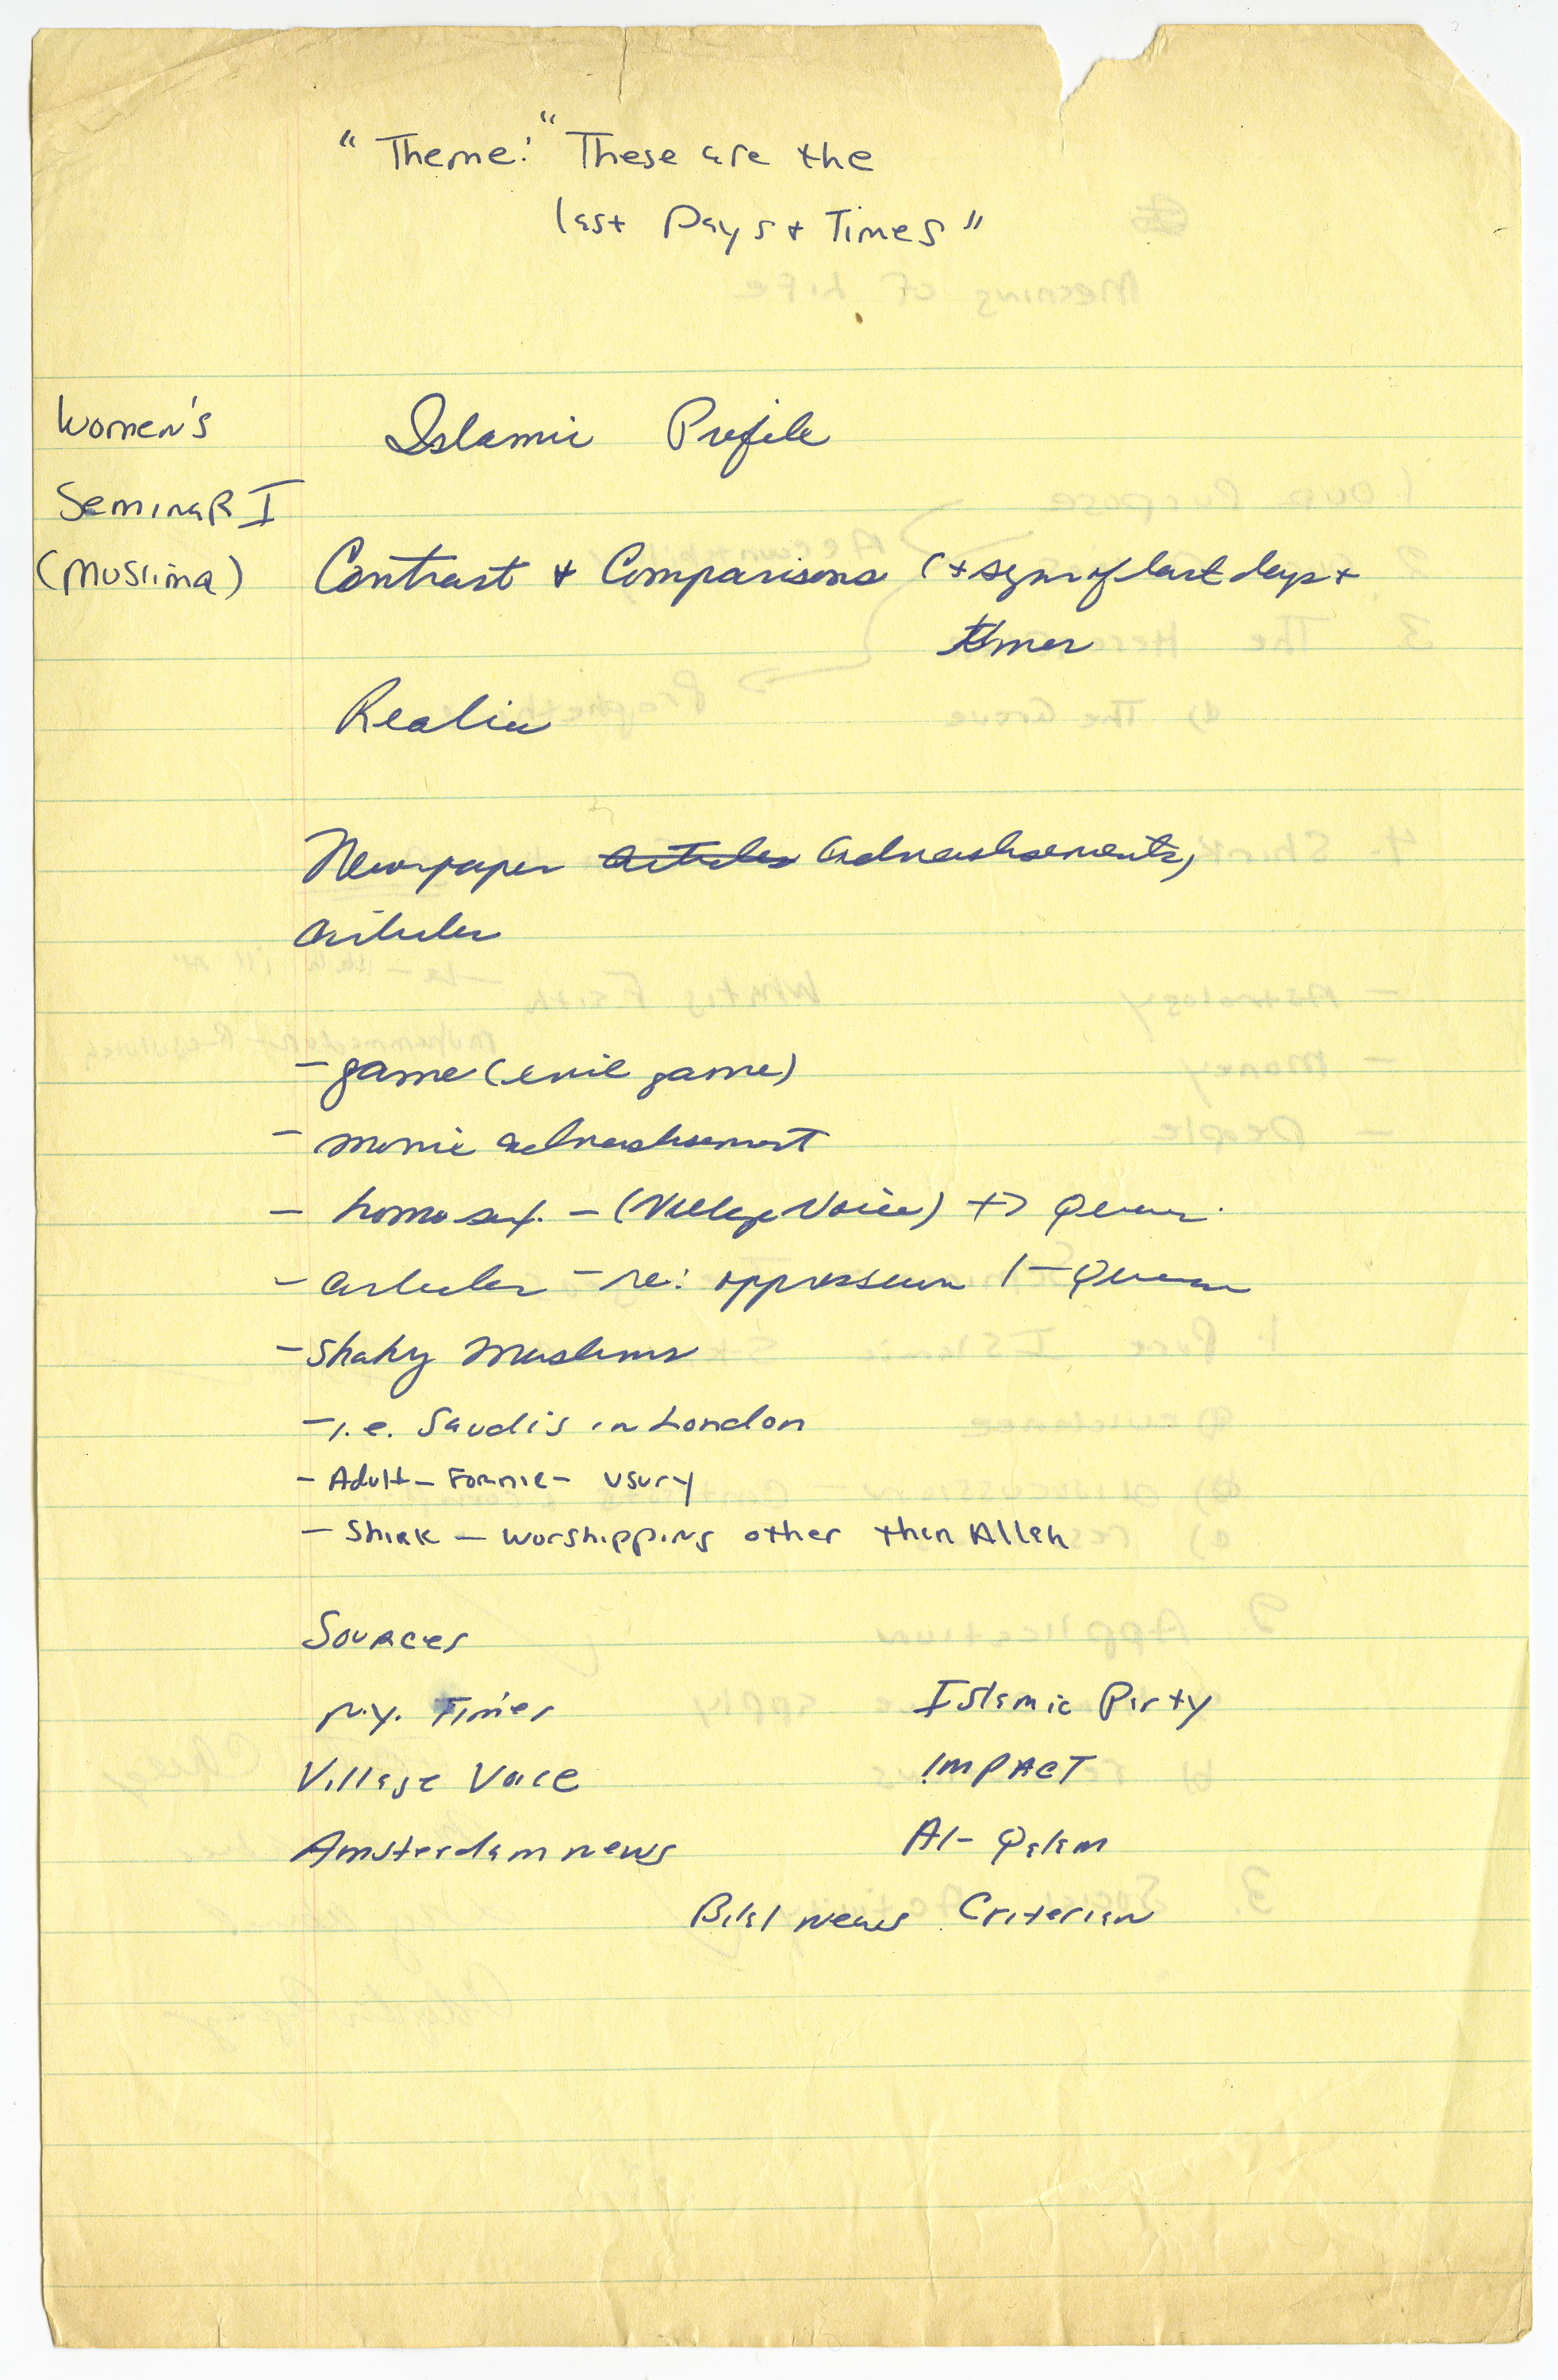 "Theme:" These are the
last Days & Times"
Women's
Seminar I
(Muslima)
Islamic Profile
Contrast & Comparisons (+ signs of last days +
times
Realia
Newspaper articles advertisements,
articles
- game (evil game)
- movie advertisement
- homosex. - (Village Voice) +> Quran
- articles - re: oppression /- Quran
- Shaky Muslims
- i.e. Saudis in London
- Adult - Fornic - usury
- Shirk - Worshipping other than Allah
Sources
N.Y. Times
Village Voice
Amsterdam news
Islamic Party
IMPACT
Al-Qalam
Bilal news Criterian